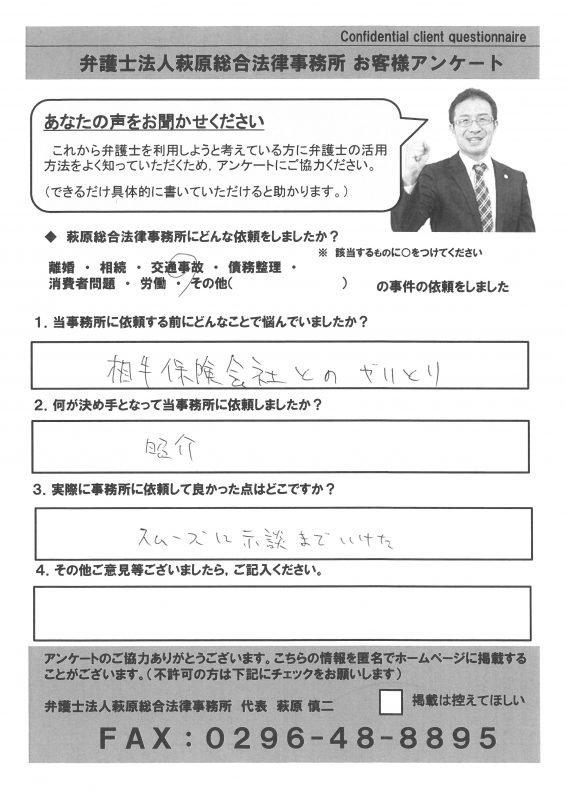 Confidential client questionnaire
弁護士法人萩原総合法律事務所 お客様アンケート
あなたの声をお聞かせください
これから弁護士を利用しようと考えている方に弁護士の活用
方法をよく知っていただくため，アンケートにご協力ください。
（できるだけ具体的に書いていただけると助かります。）
◆ 萩原総合法律事務所にどんな依頼をしましたか？
※ 該当するものに○をつけてください
離婚 ・ 相続 ・ 交通事故 ・ 債務整理 ・
消費者問題 ・ 労働 ・ その他(　　　　　　　) の事件の依頼をしました
１．当事務所に依頼する前にどんなことで悩んでいましたか？
相手保険会社とのやりとり
２．何が決め手となって当事務所に依頼しましたか？
紹介
３．実際に事務所に依頼して良かった点はどこですか？
スムーズに示談までいけた
４．その他ご意見等ございましたら，ご記入ください。
アンケートのご協力ありがとうございます。こちらの情報を匿名でホームページに掲載する
ことがございます。（不許可の方は下記にチェックをお願いします）
弁護士法人萩原総合法律事務所 代表 萩原 慎二
掲載は控えてほしい
ＦＡＸ：０２９６-４８-８８９５